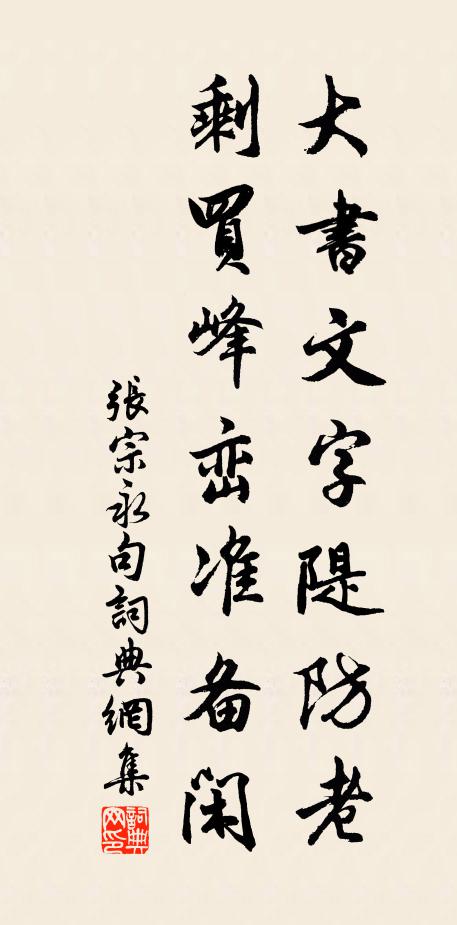 大書文字隄防老
剩買峰峦准备閑
張宗永句詞典網集
詞典网印